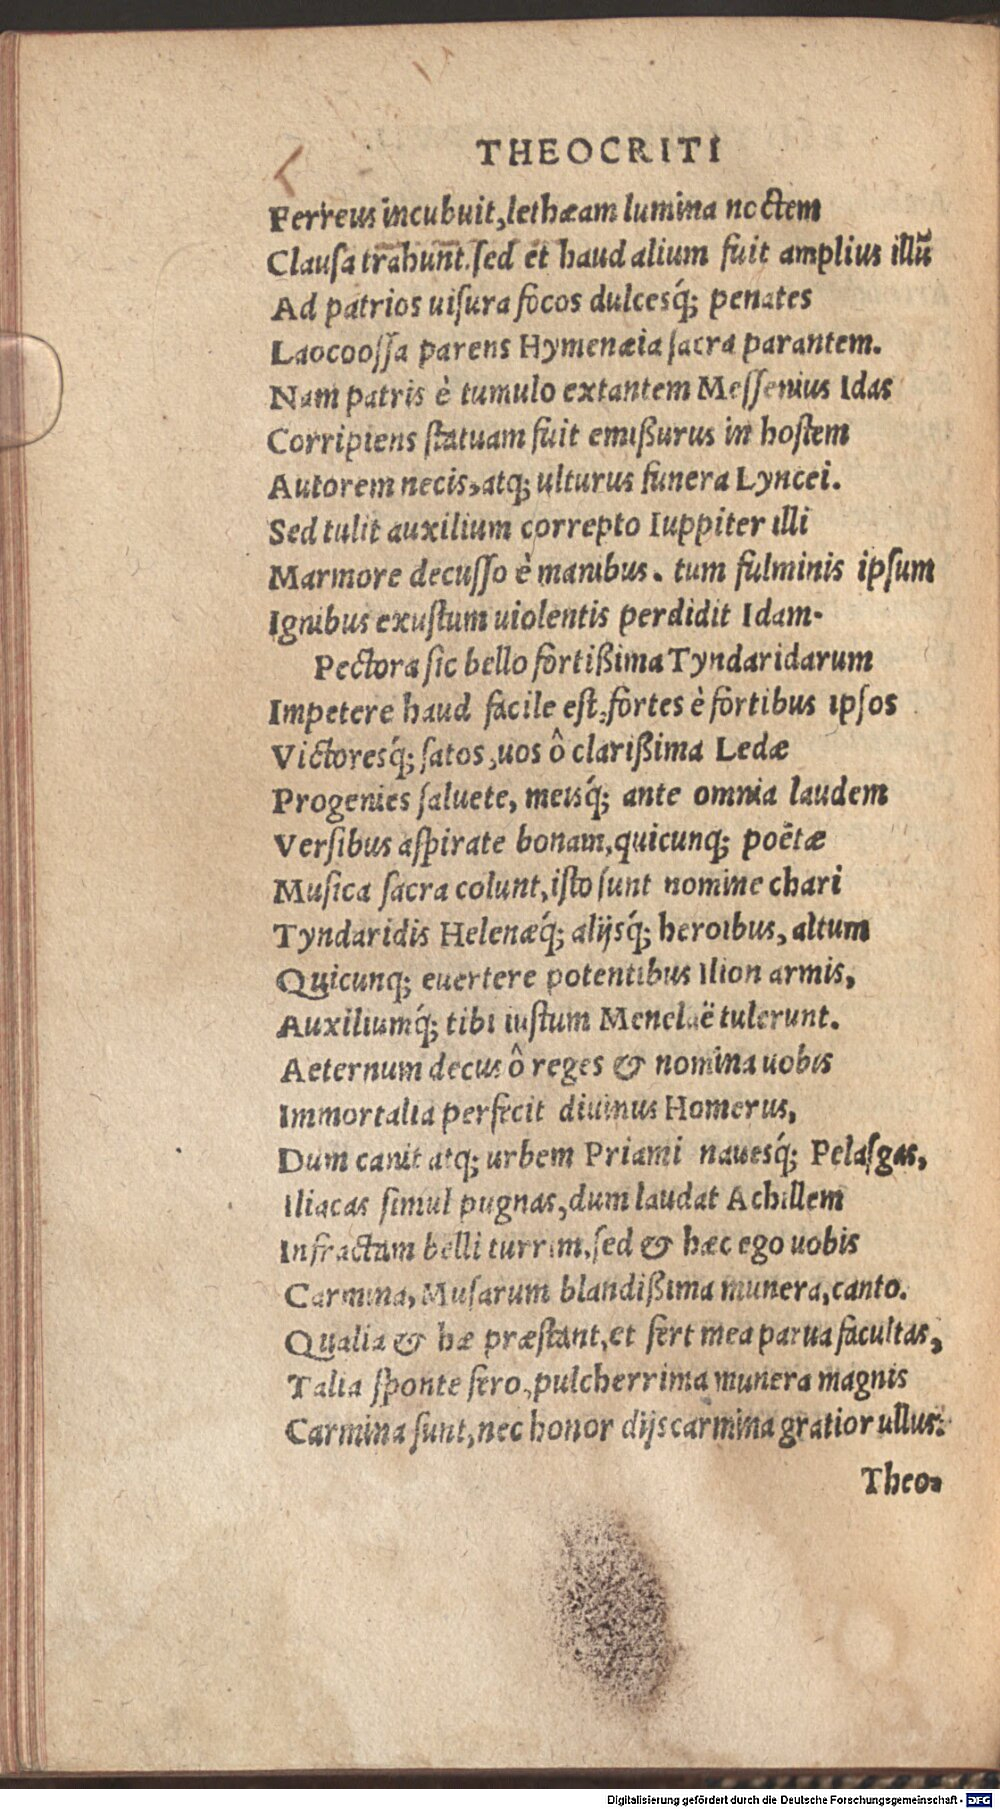 THEOCRITI
Ferreus incubuit, lethæam lumina noctem
Clauſa trahunt. ſed et haud alium fuit amplius illũ
Ad patrios uiſura focos dulcesq́; penates
Laocooſſa parens Hymenæia ſacra parantem.
Nam patris è tumulo extantem Meſſenius Idas
Corripiens ſtatuam fuit emißurus in hoſtem
Autorem necis, atq; ulturus funera Lyncei.
Sed tulit auxilium correpto Iuppiter illi
Marmore decuſſo è manibus. tum fulminis ipſum
Ignibus exuſtum uiolentis perdidit Idam.
Pectora ſic bello fortißima Tyndaridarum
Impetere haud facile eſt, fortes è fortibus ipſos
Victoresq́; ſatos, uos ô clarißima Ledæ
Progenies ſaluete, meisq́; ante omnia laudem
Verſibus aſpirate bonam, quicunq; poëtæ
Muſica ſacra colunt, iſto ſunt nomine chari
Tyndaridis Helenæq́; alijsq́; heroibus, altum
Quicunq; euertere potentibus Ilion armis,
Auxiliumq́; tibi iuſtum Menelaë tulerunt.
Aeternum decus ô reges & nomina uobis
Immortalia perfecit diuinus Homerus,
Dum canit atq; urbem Priami nauesq́; Pelaſgas,
Iliacas ſimul pugnas, dum laudat Achillem
Infractam belli turrim, ſed & hæc ego uobis
Carmina, Muſarum blandißima munera, canto.
Qualia & hæ præſtant, et fert mea parua facultas,
Talia ſponte fero, pulcherrima munera magnis
Carmina ſunt, nec honor dijs carmina gratior ullus.
Theo-
Digitalisierung gefördert durch die Deutsche Forschungsgemeinschaft - DFG